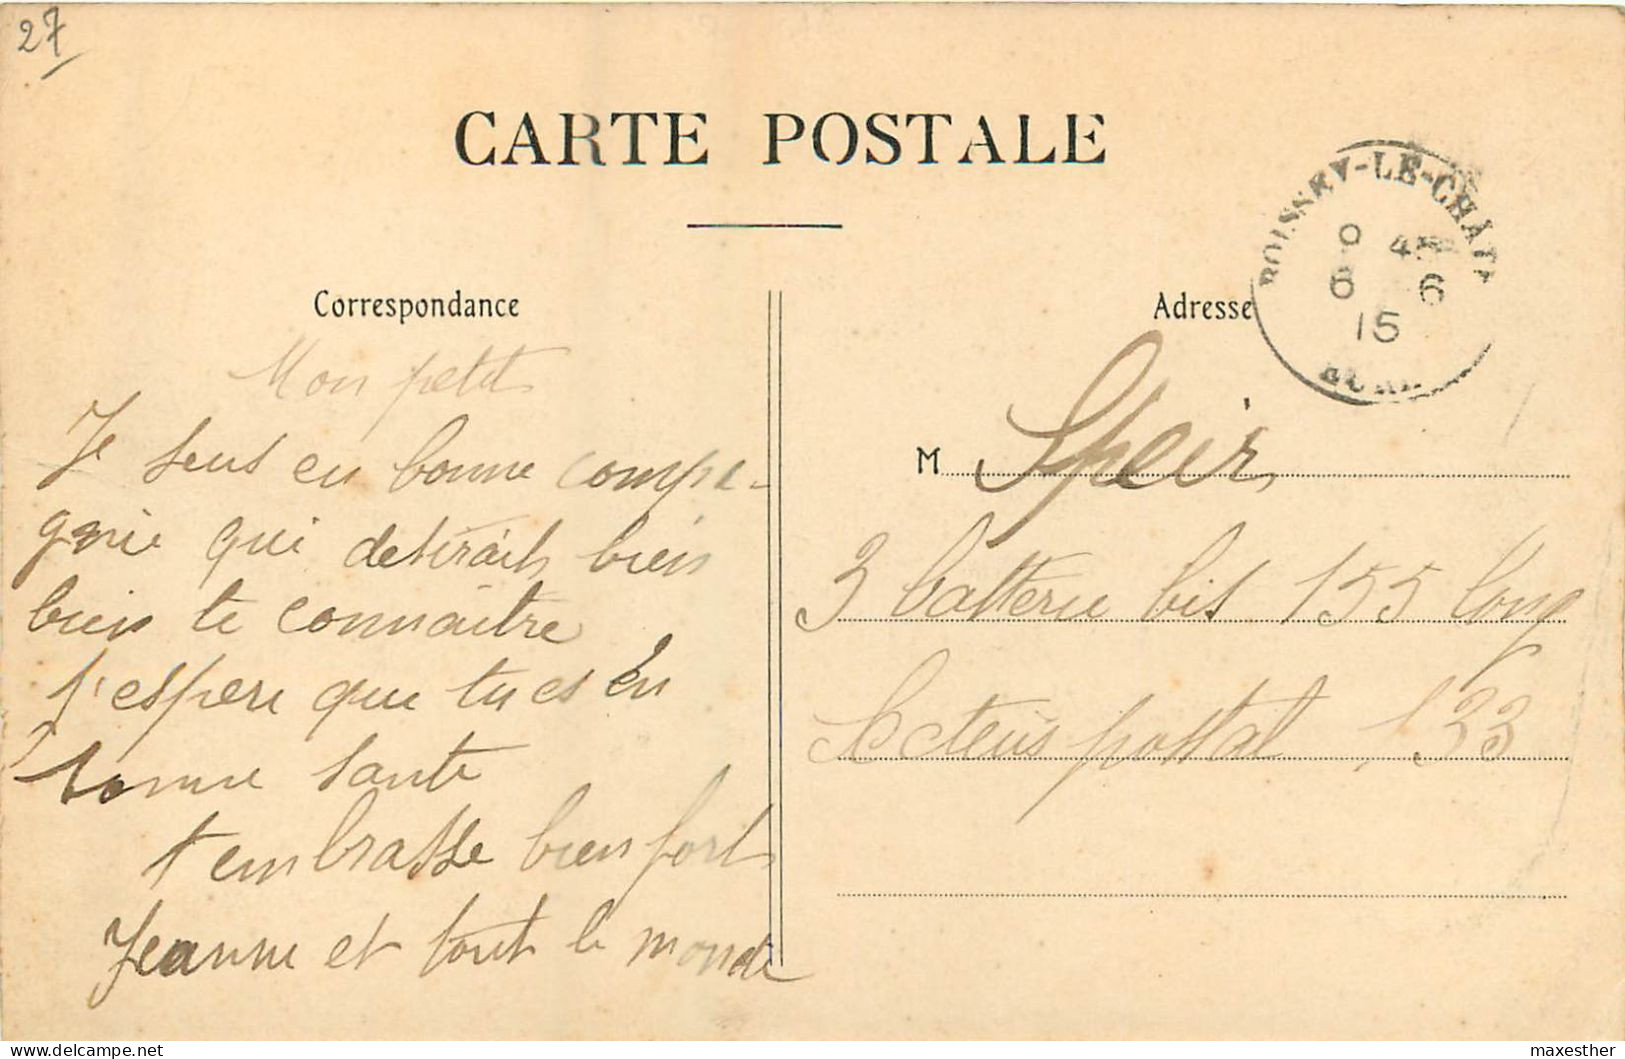 27
CARTE POSTALE
BOISSEY-LE-CHÂT
9 45
6 6
15
EURE
Correspondance
Mon petit
Je sens en bonne compa-
gnie qui desirait bien
bien te connaitre
J'espere que tu es en
bonne sante
t'embrasse bien fort
Jeanne et tout le monde
Adresse
M Speir
3 batterie bis 155 long
Secteur postal 133
delcampe.net
maxesther